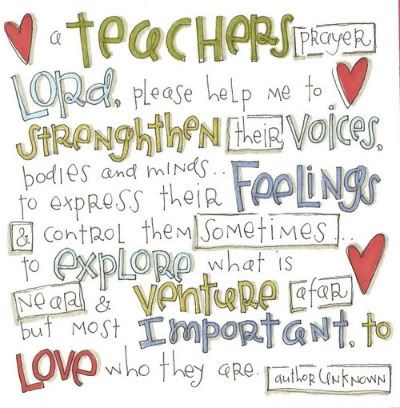 a teachers prayer
Lord, please help me to
strenghthen their voices,
bodies and minds...
to express their Feelings
& control them sometimes...
to explore what is
near & venture afar
but most Important, to
Love who they are. author unknown